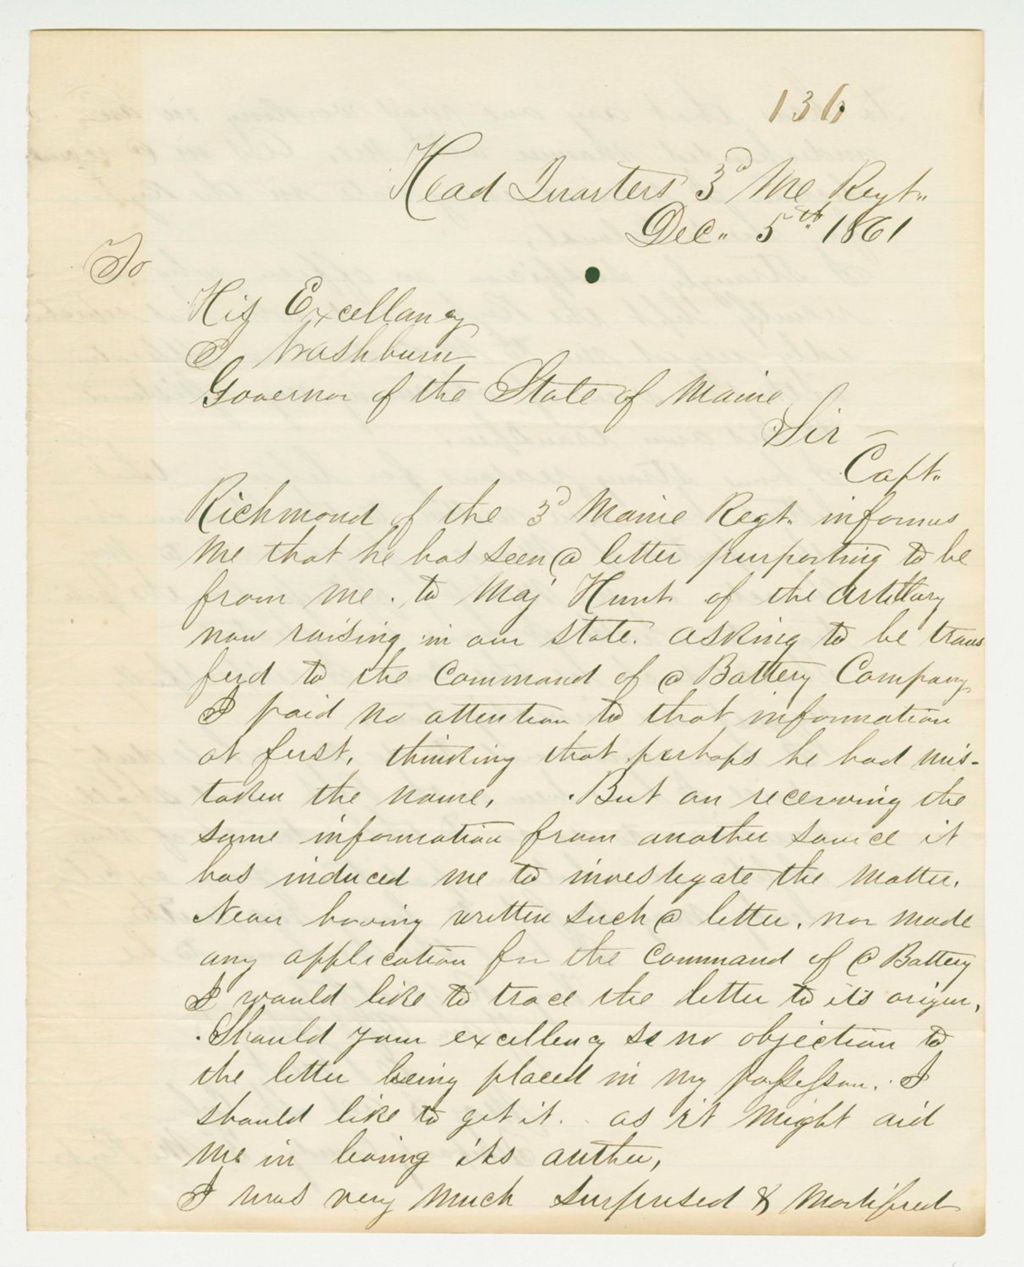 136
Head Quarters 3d Me Regt.
Dec. 5th 1861
To
His Excellancy
I Washburn
Governor of the State of Maine
Sir –
Capt.
Richmond of the 3d Maine Regt. informs
me that he has seen a letter purporting to be
from me. to Maj Hunt of the Artillary
now raising in our state. asking to be trans
ferd to the command of a Battery Company
I paid no attention to that information
at first, thinking that perhaps he had mis-
taken the name, But on receiving the
same information from another source it
has induced me to investigate the matter.
Never having written such a letter. nor made
any application for the command of a Battery
I would like to trace the letter to its origin,
Should your excellency se no objection to
the letter being placed in my possession. I
should like to get it. as it might aid
me in its
I was very much surprised & mortified